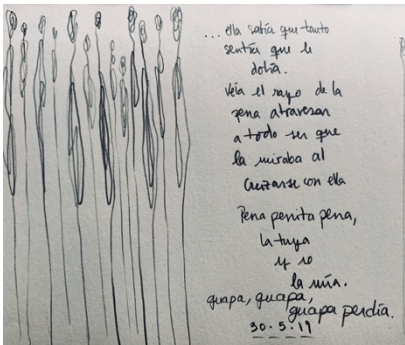 ...ella sabía que tanto
sentía que le
dolía.
Veía el rayo de la
pena atravesar
a todo ser que
la miraba al
cruzarse con ella
Pena penita pena,
la tuya
y no
la mía.
guapa, guapa,
guapa perdía.
30.5.19